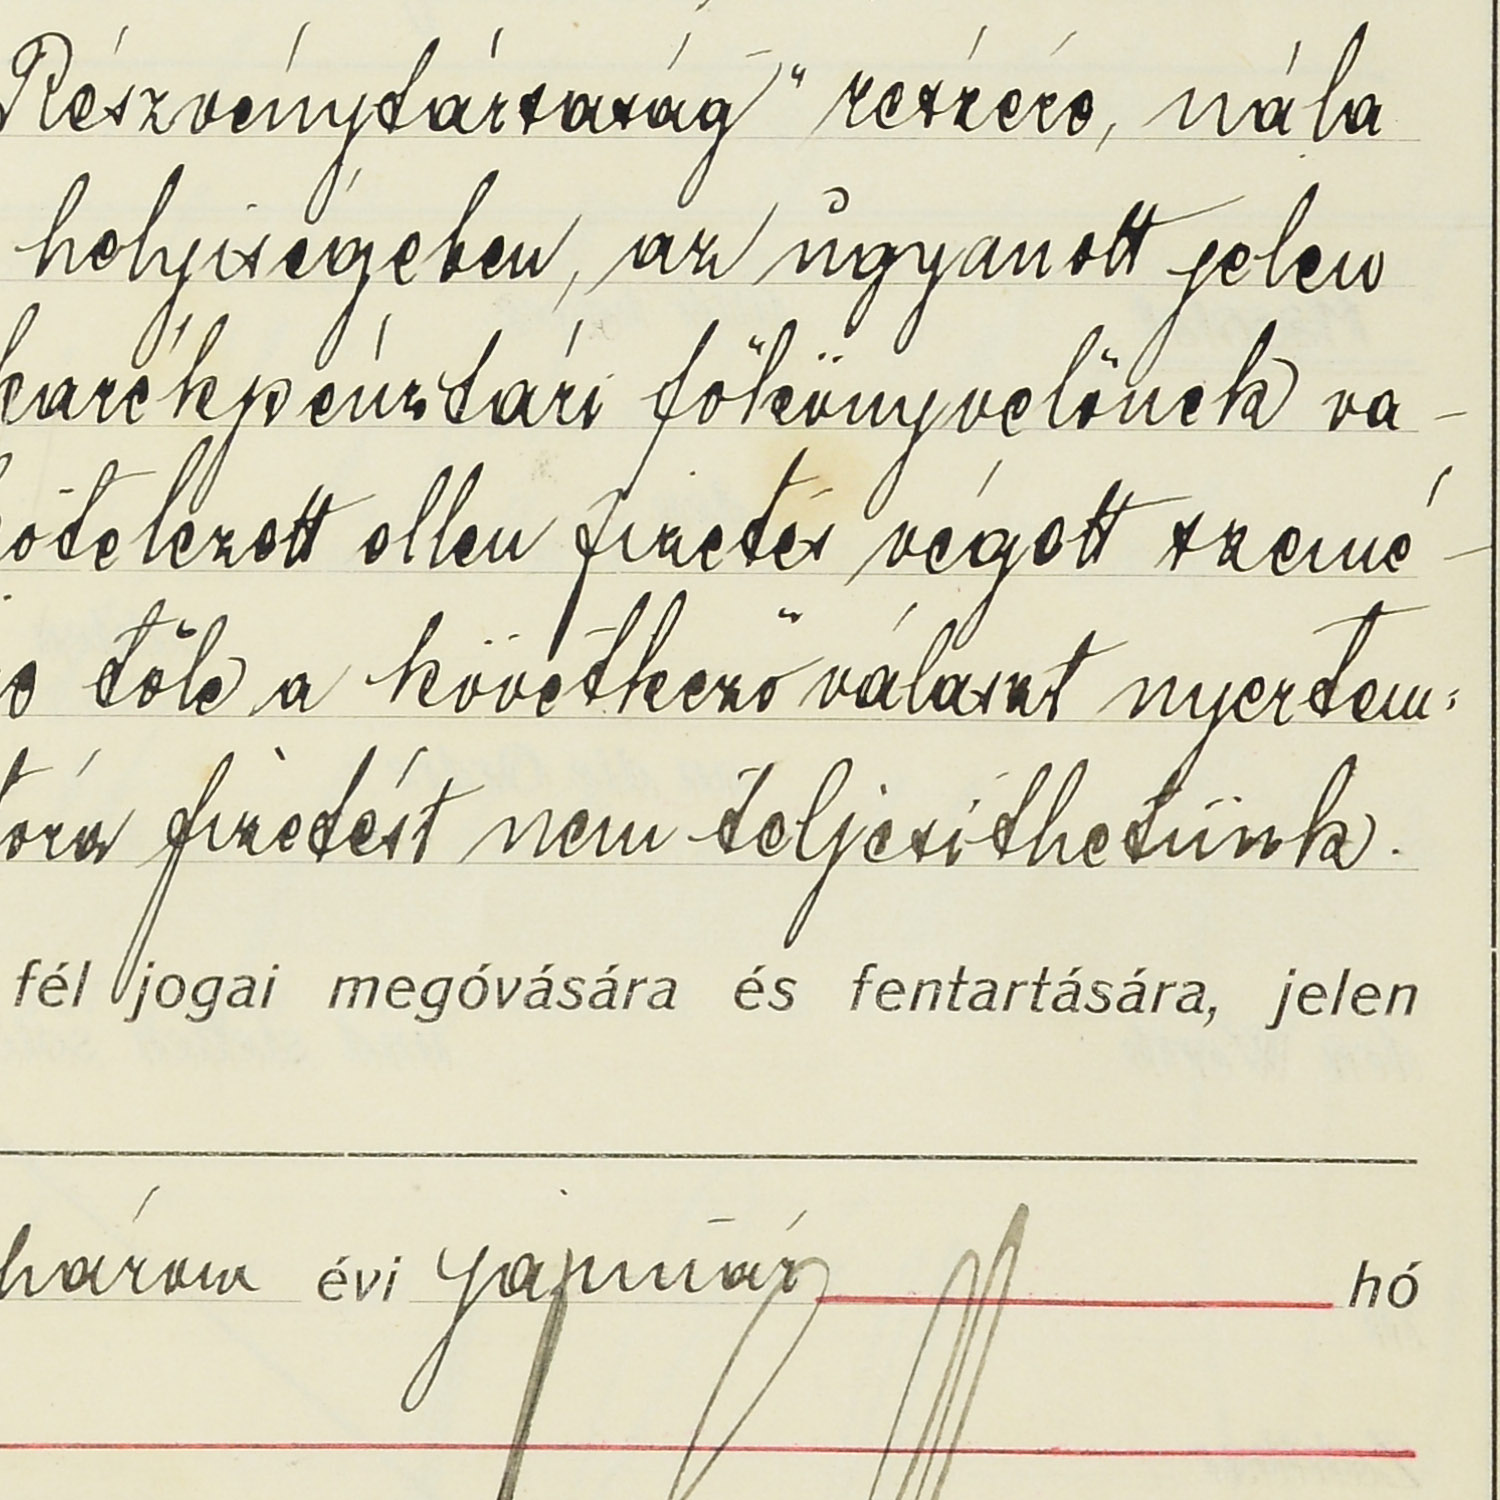 Részvénytársaság" részére, nála
helyiségében, az ugyanott jelen
karékpénztári főkönyvelőnek va-
kötelezett ellen fizetés végett szemé-
tőle a következő választ nyertem:
fizetést nem teljesithetünk.
fél jogai megóvására és fentartására, jelen
három évi január hó